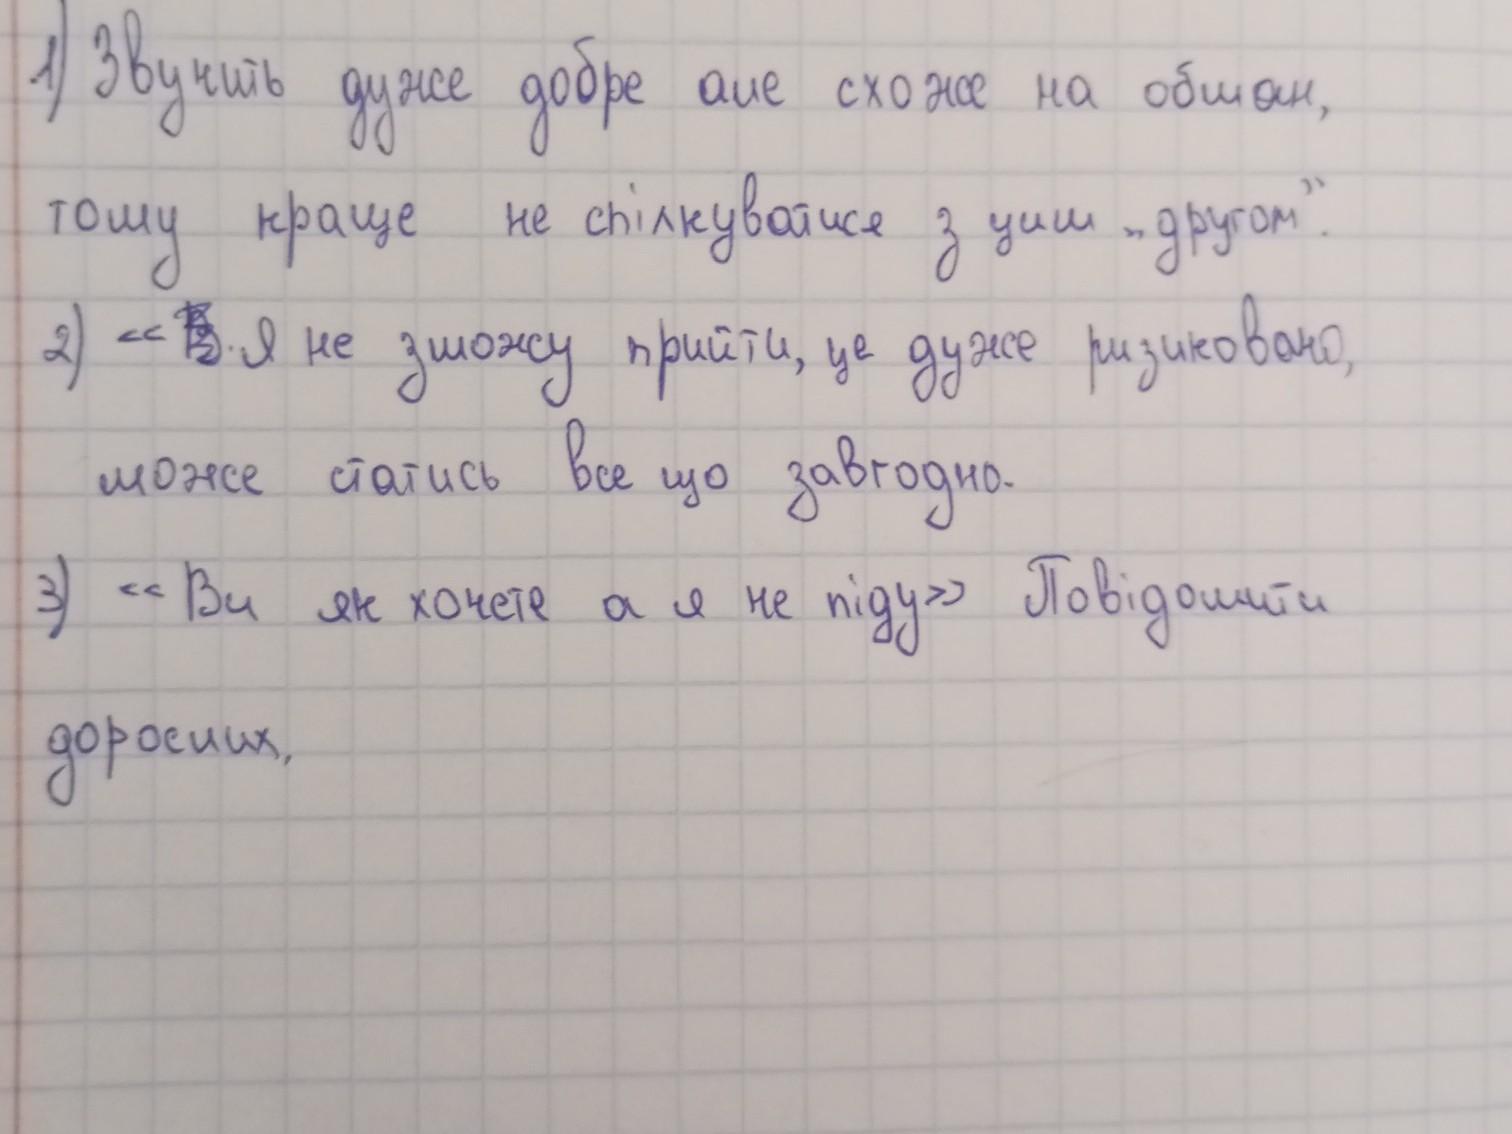 1) Звучить дуже добре але схоже на обман,
тому краще не спілкуватися з цим „другом”.
2) «Я не зможу прийти, це дуже ризиковано,
може статись все що завгодно.
3) «Ви як хочете а я не піду» Повідомити
дорослих,